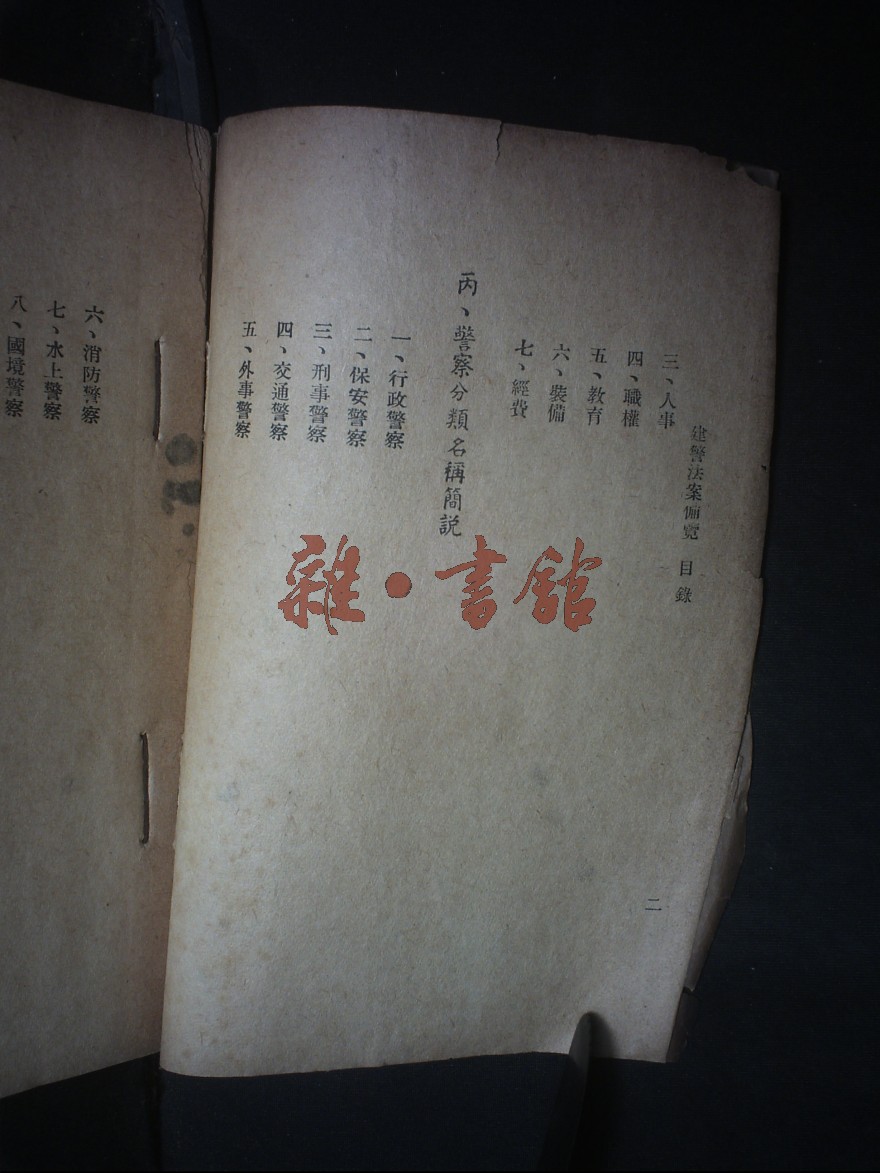 建警法案備覽 目錄
三、人事
四、職權
五、教育
六、裝備
七、經費
丙、警察分類名稱簡説
一、行政警察
二、保安警察
三、刑事警察
四、交通警察
五、外事警察
二
六、消防警察
七、水上警察
八、國境警察
雜·書館